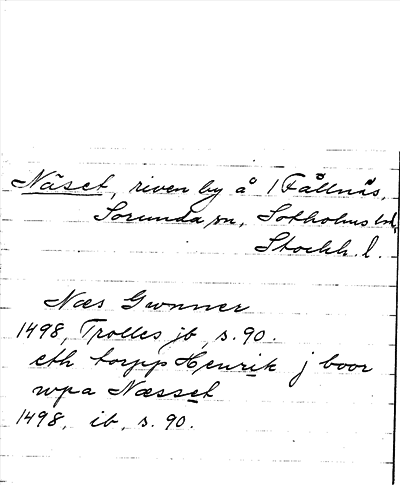 Näset, riven by å 1 Fållnäs,
Sorunda sn, Sotholms hd,
Stockh. l.
Næs Gwnner
1498, Trolles jb, s. 90.
eth torpp Henrik j boor
wpa Næsset
1498, ib, s. 90.